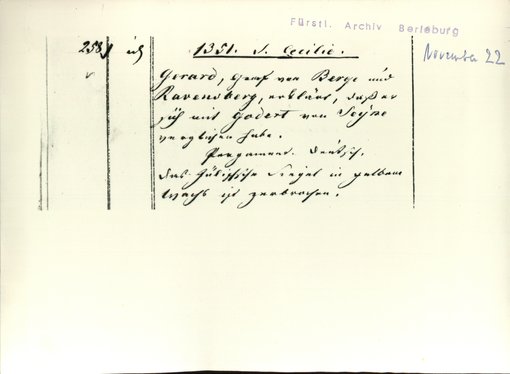 Fürstl. Archiv Berleburg
November 22
258
1351. S. Cecilie.
Gerard, Graf von Berge und
Ravensberg, erklärt, daß er
sich mit Godert von Seyne
verglichen habe.
Pergament. Deutsch.
Das Jülichsche Siegel in gelbem
Wachs ist zerbrochen.